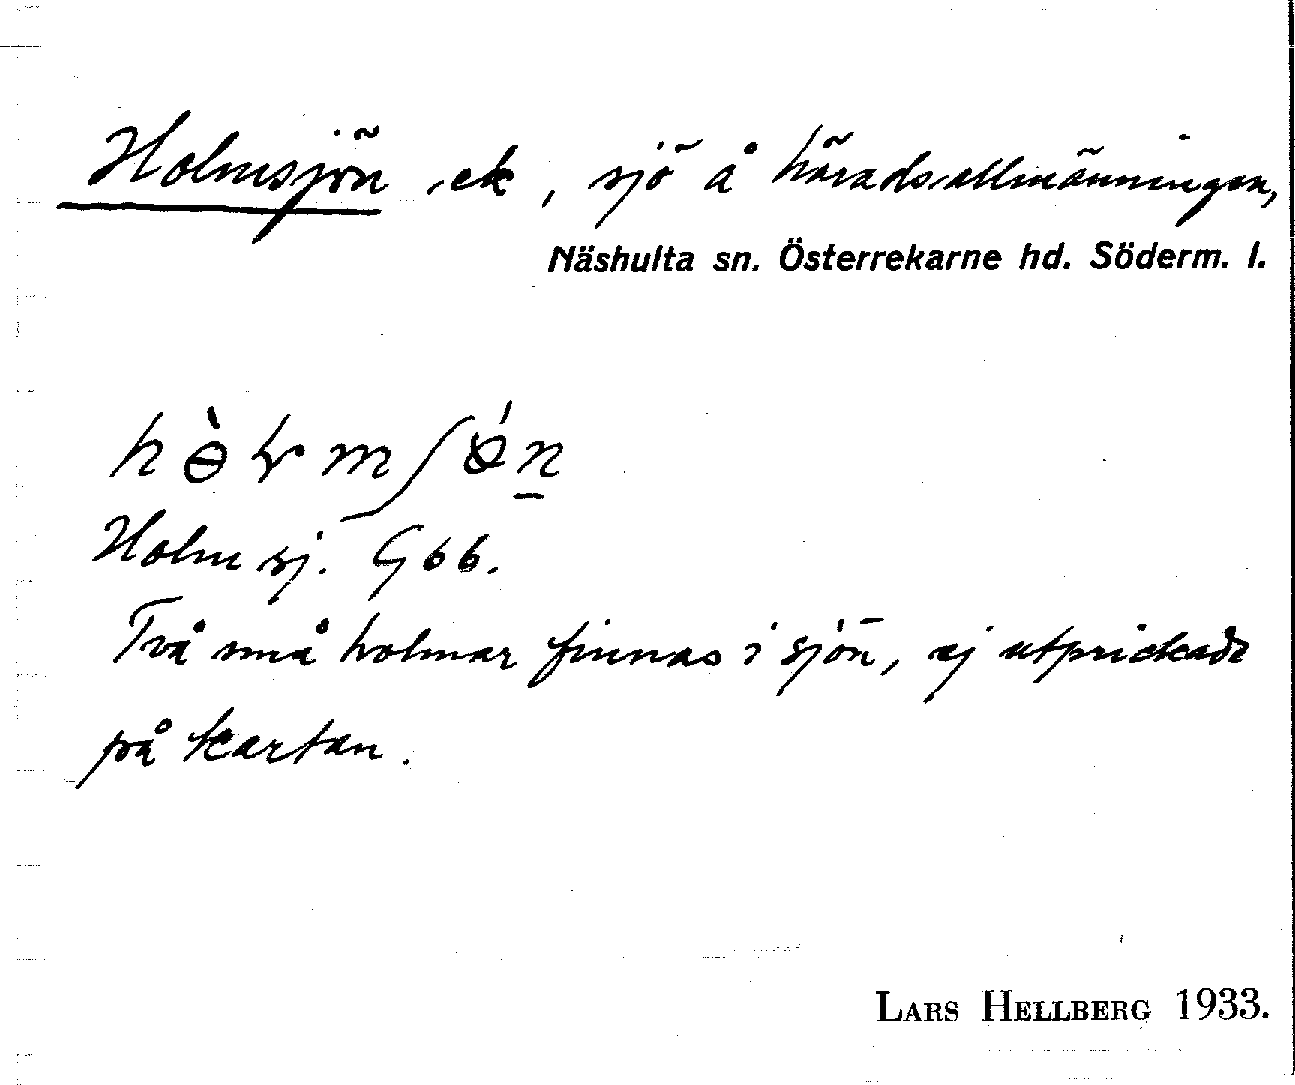 Holmsjön, ek, sjö å häradsallmänningen,
Näshulta sn. Österrekarne hd. Söderm. l.
Holm sj. G 66.
Två små holmar finnas i sjön, ej utprickade
på kartan.
LARS HELLBERG 1933.